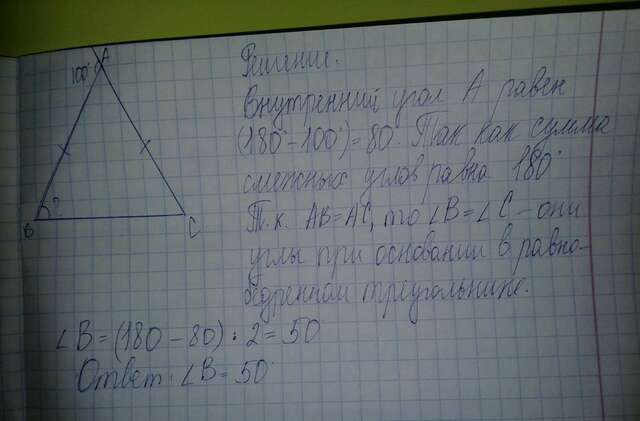 Решение.
A
100°
Внутренний угол А равен
(180°-100°)=80°. Так как сумма
смежных углов равна 180°
?
B
C
Т.к. АВ=АС, то ∠В=∠С - они
углы при основании в равно-
бедренном треугольнике.
∠В=(180-80):2=50
Ответ: ∠В=50°